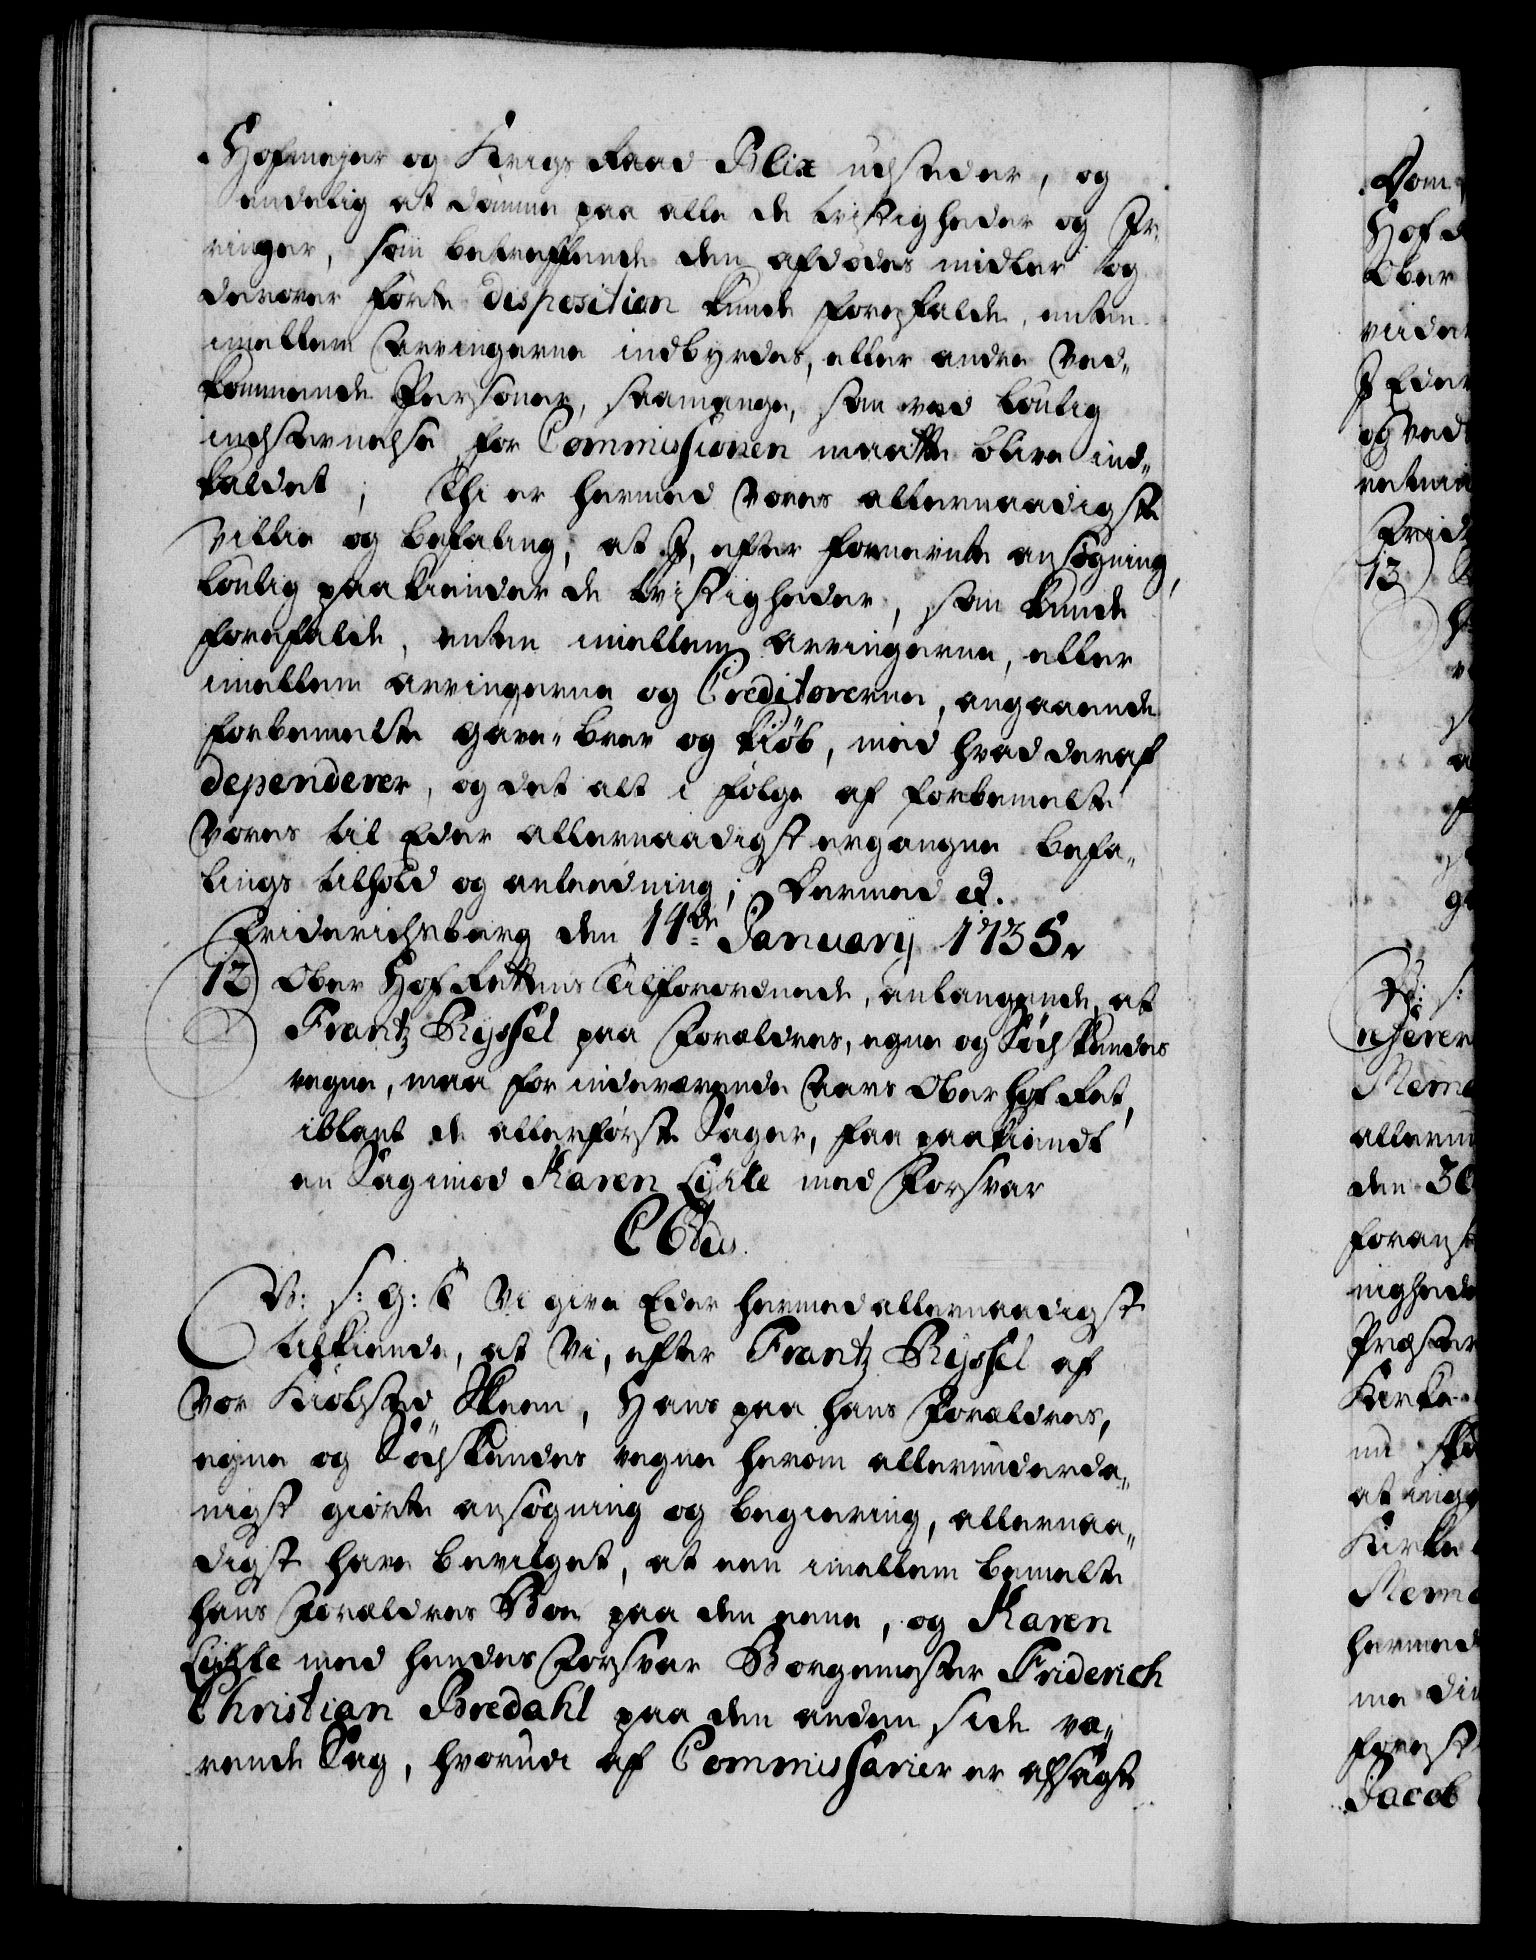 Hofmejer og Krigs Raad Blix udsteder, og
endelig at dømme paa alle de tvistigheder og Ir¬
ringer, som betreffende den afdødes midler og
derover førte disposition kunde forefalde, enten
imellem Arvingerne indbyrdes, eller andre Ved¬
kommende Personer, saamange, som ved louglig
indstevnelse for Commissionen maatte blive ind¬
kaldet; Thi er hermed Vores allernaadigste
Villie og befaling, at I, efter fornevnte ansøgning,
louglig paakiender de tvistigheder, som kunde
forefalde, enten imellem arvingerne, eller
imellem arvingerne og Creditorerne, angaaende
forbemelte gave-brev og kiøb, med hvad deraf
dependerer, og det alt i følge af forbemelte
Vores til Eder allernaadigst ergangne befa¬
lings tilhold og anledning; Dermed etc.
Friderichsberg den 14de January 1735.
12) Ober Hof Rettens Tilforordnede, anlangende, at
Frantz Ryssel paa Forældres, egne og Sødskendes
vegne, maa for indeværende Aars Ober Hof Ret,
iblant de allerførste Sager, faa paakiendt
en Sag imod Karen Lykke med Forsvar
C 6tus.
V: S: G: T Vi give Eder hermed allernaadigst
tilkiende, at Vi, efter Frantz Ryssel af
Vor Kiøbsted Skeen, Hans paa hans Forældres,
egne og Sødskendes vegne herom allerunderda¬
nigst giorte ansøgning og begiering, allernaa¬
digst have bevilget, at een imellem bemelte
hans Forældres Boe paa den eene, og Karen
Lykke med hendes Forsvar Borgemester Friderich
Christian Bredahl paa den anden side væ¬
rende Sag, hvorudi af Commissarier er afsagt